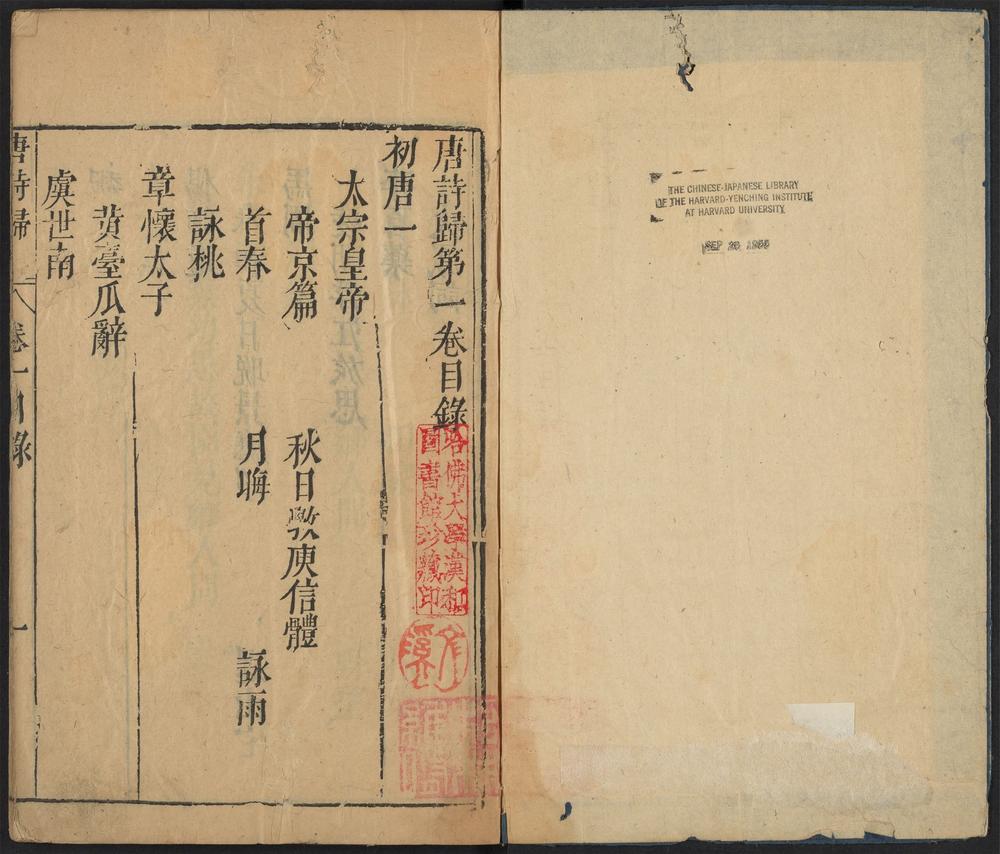 THE CHINESE-JAPANESE LIBRARY
OF THE HARVARD-YENCHING INSTITUTE
AT HARVARD UNIVERSITY
SEP 1955
唐詩歸第一卷目錄
哈佛大學漢和
圖書館珍藏印
初唐一
太宗皇帝
帝京篇 秋日斆庾信體
首春 月晦 詠雨
詠桃
章懷太子
黃臺瓜辭
虞世南
唐詩歸 卷一目錄 一